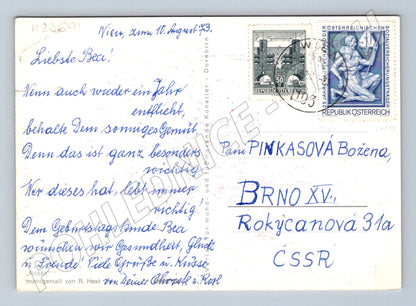 Wien, zum 10. August 73.
Liebste Bea!
Wenn auch wieder ein Jahr
entflieht,
behalte Dein sonniges Gemüt.
Denn das ist ganz besonders
wichtig
Wer dieses hat, lebt immer
richtig.
Dem Geburtstagskinde Bea
wünschen wir Gesundheit, Glück
u. Freude! Viele Grüße u. Küsse
von Deiner
u.
mundgemalt von R. Hext
WIEN
1103
50
REPUBLIK ÖSTERREICH
Paní PINKASOVÁ Božena,
BRNO XV.,
Rokycanová 31a
ČSSR
POHLEDNICE